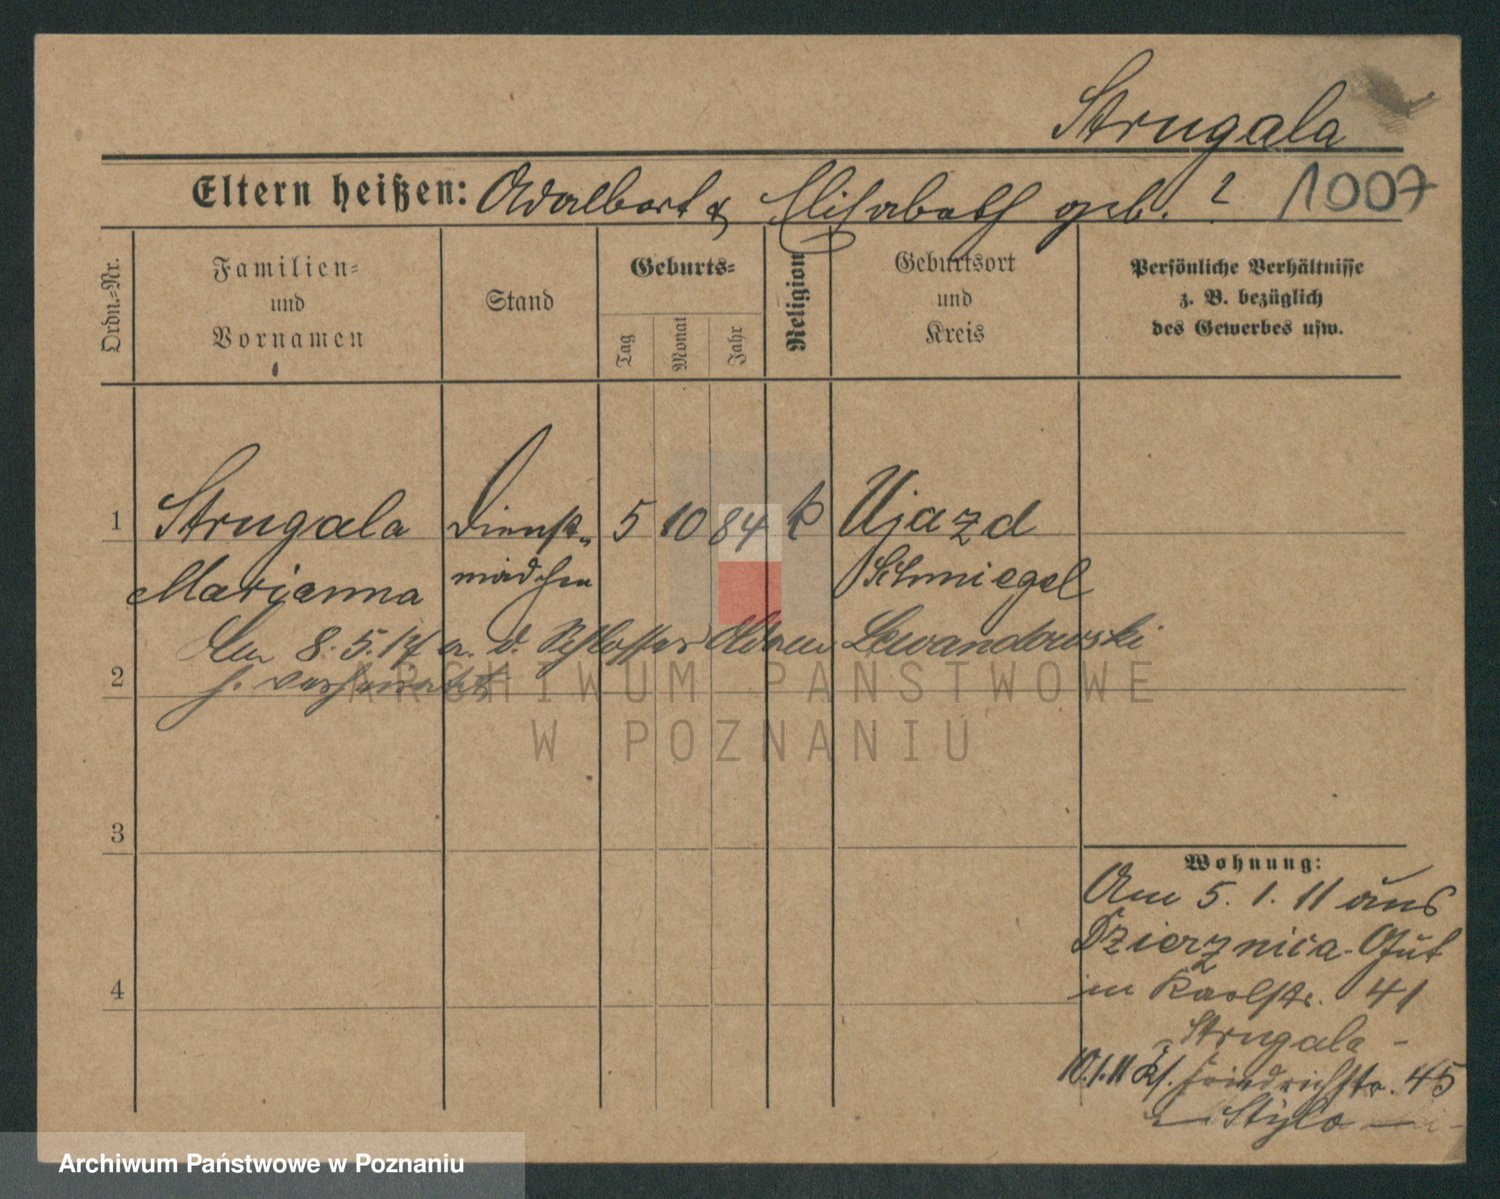 Strugala
Eltern heißen: Adalbert & Elisabeth geb. ? 1007
Ordn.=Nr.
Familien=
und
Vornamen
Stand
Geburts=
Tag
Monat
Jahr
Religion
Geburtsort
und
Kreis
Persönliche Verhältnisse
z. B. bezüglich
des Gewerbes usw.
1 Strugala Dienst= 5 10 84 k Ujazd
Marianna mädchen Schmiegel
Am 8.5.17 m. d. Schlosser Adam Lewandowski
2 h. verheiratet
ARCHIWUM PAŃSTWOWE
W POZNANIU
3
Wohnung:
Am 5. 1. 11 aus
Dzierznica-Gut
in Karlstr. 41
Strugala -
10.1.11 Kl. Friedrichstr. 45
Stylo
4
Archiwum Państwowe w Poznaniu